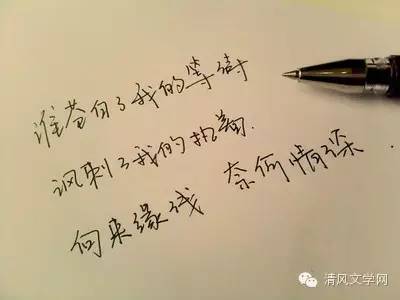 谁苍白了我的等待
讽刺了我的执着.
向来缘浅 奈何情深.
清风文学网